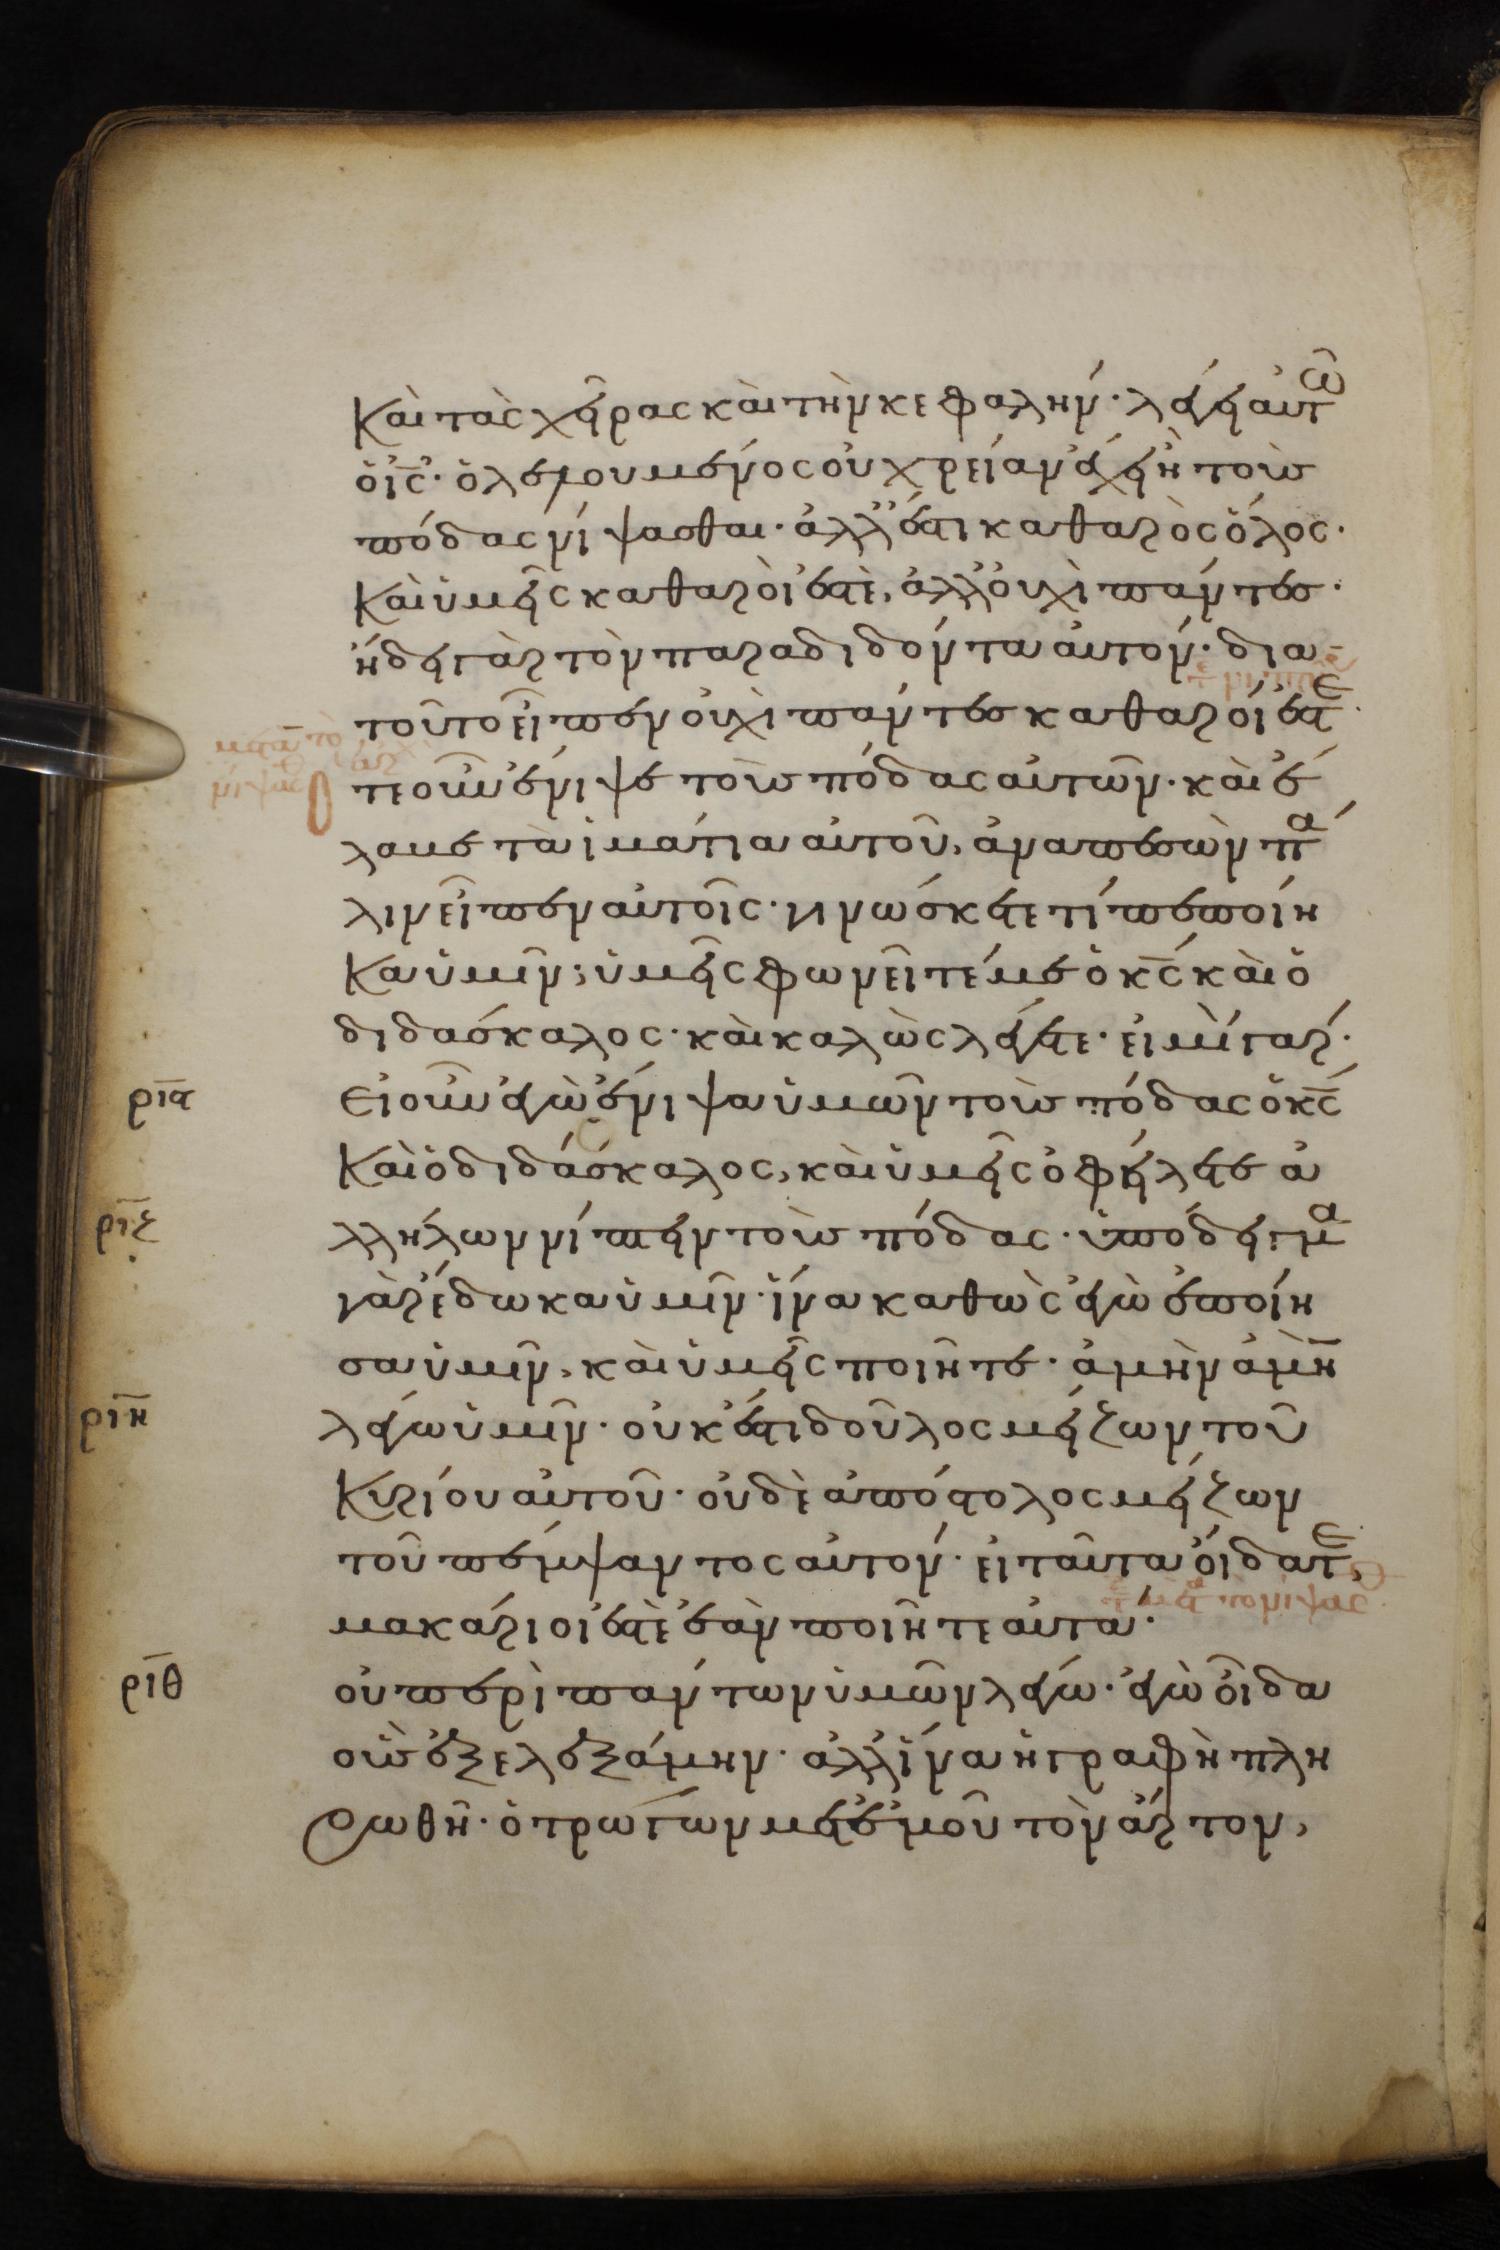 καὶ τὰς χεῖρας καὶ τὴν κεφαλήν· λέγει αὐτῶ
ὁ ἰς̅· ὁ λελουμένος οὐ χρείαν ἔχει ἢ τοὺς
πόδας νίψασθαι· ἀλλ' ἔστι καθαρὸς ὅλος·
καὶ ὑμεῖς καθαροί ἐστὲ, ἀλλ' οὐχὶ πάντες·
ἤδει γὰρ τὸν παραδιδόντα αὐτόν· δια
τοῦτο εἶπεν οὐχὶ πάντες καθαροί ἐστε·
ὅτε οὖν ἔνιψε τοὺς πόδας αὐτῶν· καὶ ἔ
λαβε τὰ ἱμάτια αὐτοῦ, ἀναπεσὼν πά
λιν εἶπεν αὐτοῖς· γινώσκετε τί πεποίη
κα ὑμῖν; ὑμεῖς φωνεῖτέ με ὁ κς̅ καὶ ὁ
διδάσκαλος· καὶ καλῶς λέγετε· εἰμὶ γάρ·
ρις̅ εἰ οὖν ἐγὼ ἔνιψα ὑμῶν τοὺς πόδας ὁ κς̅
καὶ ὁ διδάσκαλος, καὶ ὑμεῖς ὀφείλετε ἀ
ριζ̅ λλήλων νίπτειν τοὺς πόδας· ὑπόδειγμα
γὰρ ἔδωκα ὑμῖν· ἵνα καθὼς ἐγὼ ἐποίη
σα ὑμῖν, καὶ ὑμεῖς ποιῆτε· ἀμὴν ἀμὴν
ριη̅ λέγω ὑμῖν· οὐκ ἔστι δοῦλος μείζων τοῦ
κυρίου αὐτοῦ· οὐδὲ ἀπόστολος μείζων
τοῦ πέμψαντος αὐτόν· εἰ ταῦτα οἴδατε,
μακάριοί ἐστὲ ἐὰν ποιῆτε αὐτά·
ριθ̅ οὐ περὶ πάντων ὑμῶν λέγω· ἐγὼ οἶδα
οὓς ἐξελεξάμην· ἀλλ' ἵνα ἡ γραφὴ πλη
ρωθῆ· ὁ τρώγων μετ' ἐμοῦ τὸν ἄρτον,